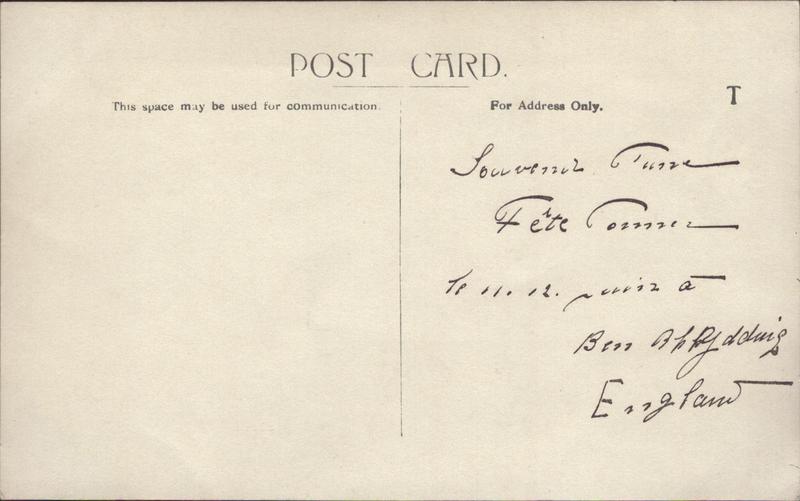 POST CARD.
This space may be used for communication.
For Address Only.
T
Souvenir d'une
Fête donnée
le 11. 12. juin à
Ben Rhydding
England